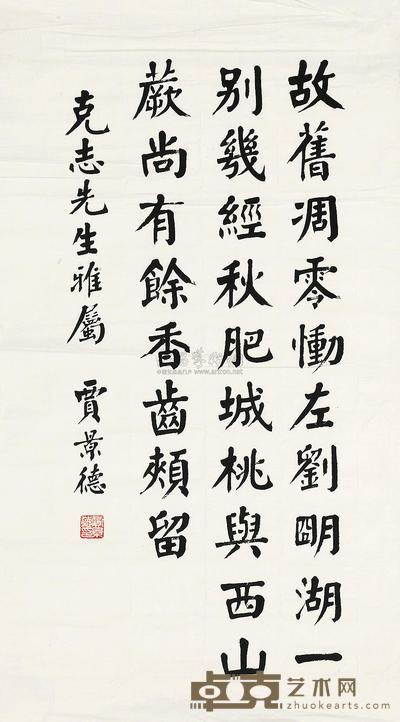 故舊凋零慟左劉明湖一
別幾經秋肥城桃與西山
蕨尚有餘香齒頰留
克志先生雅屬 賈景德
卓克艺术网
www.zhuokearts.com